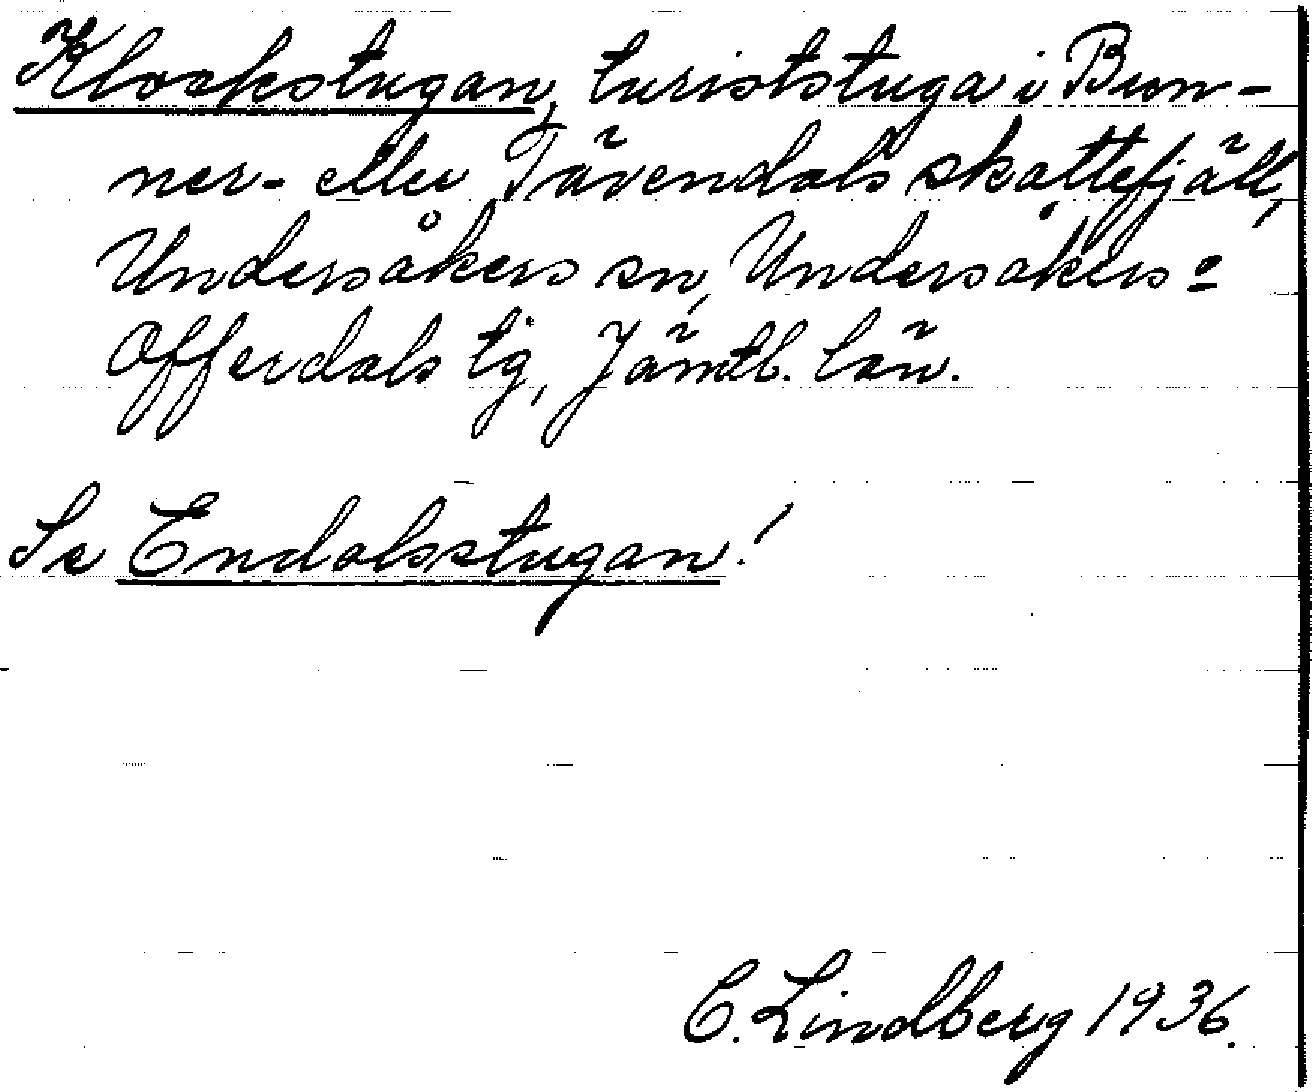 Klockstugan, turiststuga i Bun-
ner- eller Tävendals skattefjäll,
Undersåkers sn, Undersåkers o
Offerdals tg, Jämtl. län.
Se Endalsstugan!
C. Lindberg 1936.